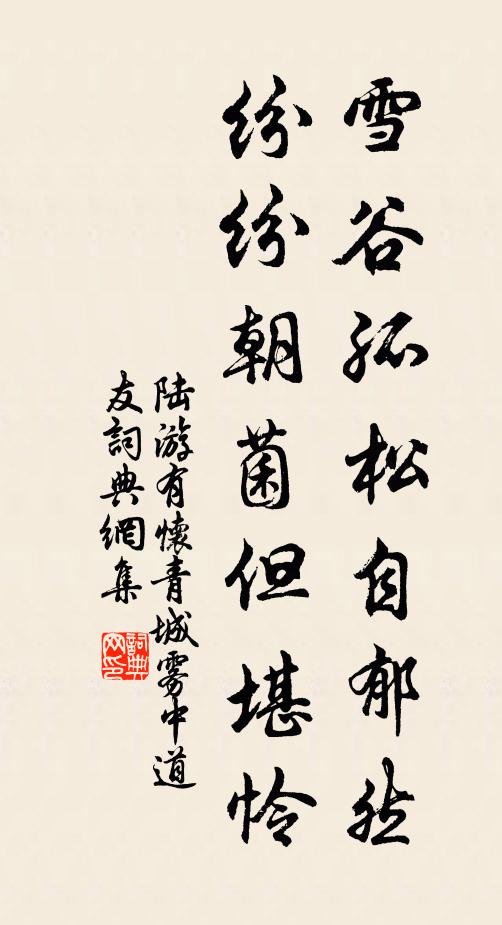 雪谷孤松自郁然
纷纷朝菌但堪怜
陆游有懷青城雾中道
友詞典網集
詞典
网印